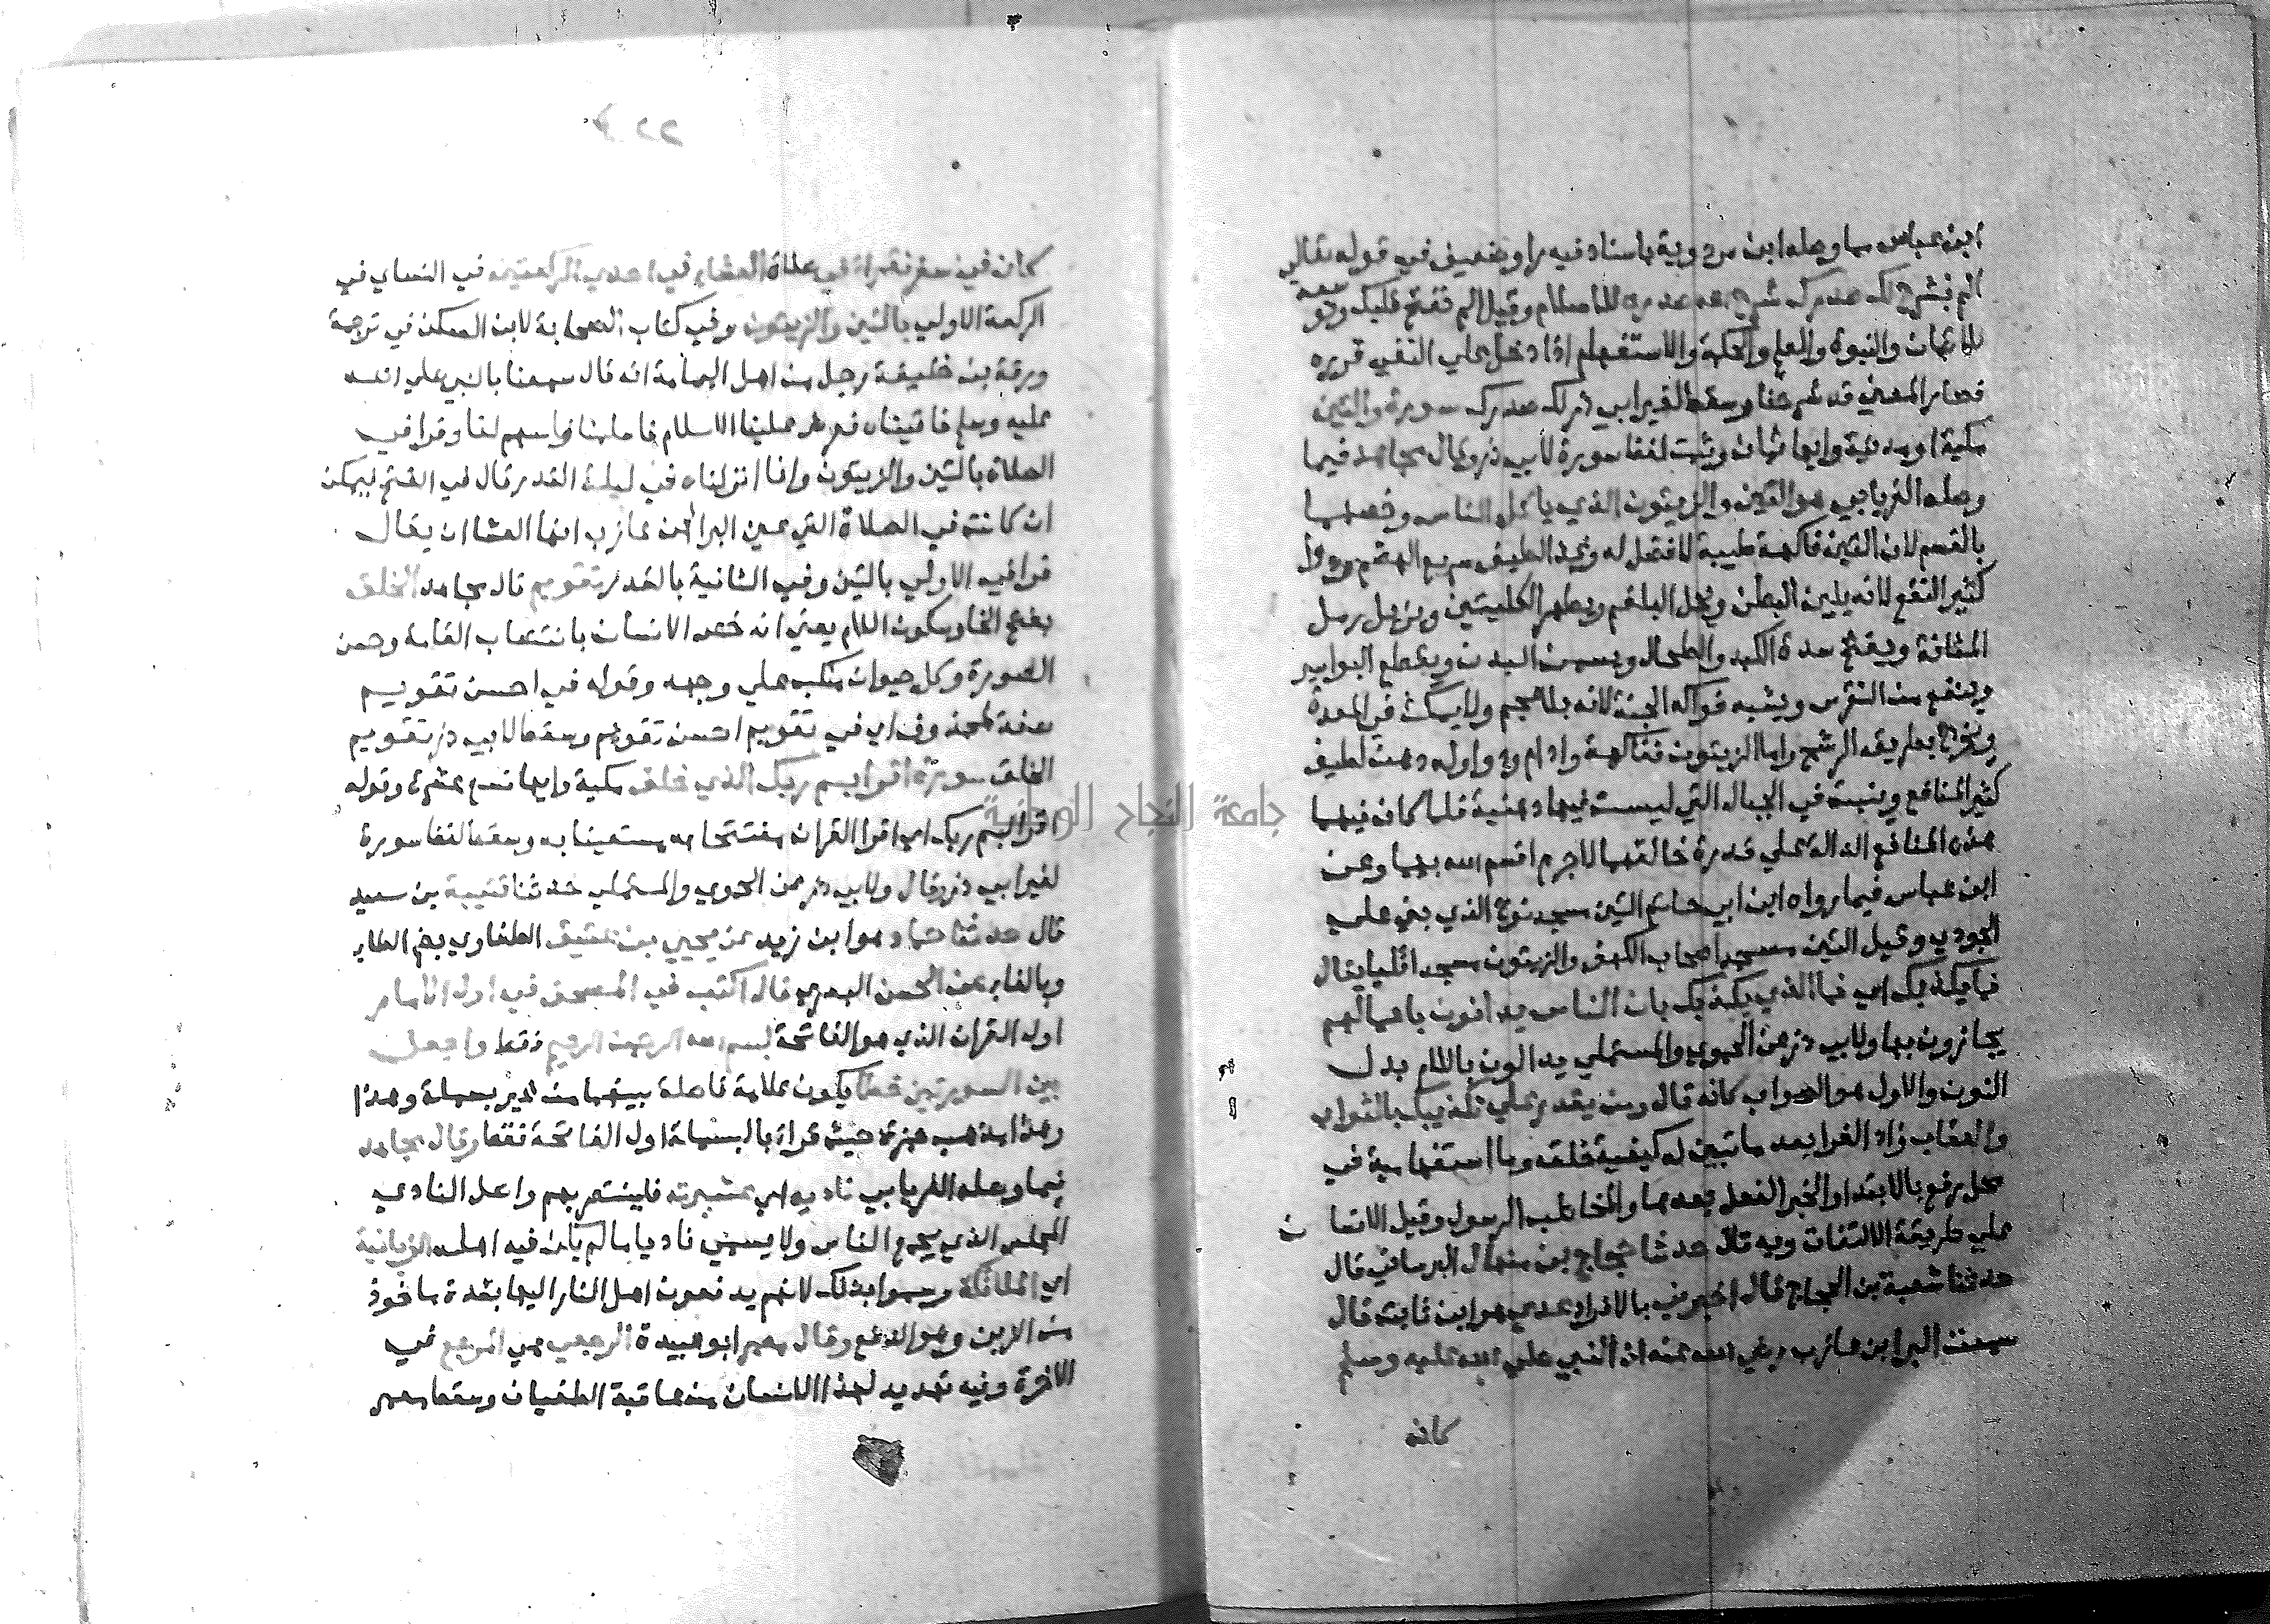 ابن عباس مما وصله ابن مردوية باسناد فيه راو ضعيف في قوله تعالي
الم نشرح لك صدرك شرح الله صدره للاسلام وقيل الم نفتح قلبك ونوسعه
بالايمان والنبوة والعلم والحكمة والاستفهام اذا دخل علي النفي قرره
فصار المعني قد شرحنا وسقط لغير ابي ذر لك صدرك سورة والتين
مكية او مدنية وايها ثمان وثبت لفظ سورة لابي ذر وقال مجاهد فيما
وصله الفريابي هو التين والزيتون الذي ياكل الناس وخصهما
بالقسم لان التين فاكهة طيبة لا فضل له وغذا لطيف سريع الهضم ودوا
كثير النفع لانه يلين البطن ويحلل البلغم ويطهر الكليتين ويزيل رمل
المثانة ويفتح سدة الكبد والطحال ويسمن البدن ويقطع البواسير
وينفع من النقرس ويشبه فواكه الجنة لانه بلا عجم ولا يمكث في المعدة
ويخرج بطريق الرشح واما الزيتون ففاكهة وادام ودوا وله دهن لطيف
كثير المنافع وينبت في الجبال التي ليست فيها دهنية فلما كان فيهما
هذه المنافع الدالة علي قدرة خالقهما لا جرم اقسم الله بهما وعن
ابن عباس فيما رواه ابن ابي حاتم التين مسجد نوح الذي بني علي
الجودي وقيل التين مسجد اصحاب الكهف والزيتون مسجد ايليا يقال
فما يكذبك اي فما الذي يكذبك بان الناس يدانون باعمالهم
يجازون بها ولابي ذر عن الحموي والمستملي يدالون باللام بدل
النون والاول هو الصواب كانه قال ومن يقدر علي تكذيبك بالثواب
والعقاب زاد الفرا بعد ما تبين له كيفية خلقه وما استفهامية في
محل رفع بالابتدا والخبر الفعل بعدها والمخاطب الرسول وقيل الانسان
علي طريقة الالتفات وبه قال حدثنا حجاج بن منهال البرساني قال
حدثنا شعبة بن الحجاج قال اخبرني بالافراد عدي هو ابن ثابت قال
سمعت البرا بن عازب رضي الله عنه ان النبي صلي الله عليه وسلم
كان
كان في سفر فقرا في صلاة العشاء في احدي الركعتين في النساي في
الركعة الاولي بالتين والزيتون وفي كتاب الصحابة لابن السكن في ترجمة
ورقة بن خليفة رجل من اهل اليمامة انه قال سمعنا بالنبي صلي الله
عليه وسلم فاتيناه فعرض علينا الاسلام فاسلمنا واسهم لنا وقرا في
الصلاة بالتين والزيتون وانا انزلناه في ليلة القدر قال في الفتح ليمكن
ان كانت في الصلاة التي عين البرا ابن عازب انها العشا ان يقال
قرا في الاولي بالتين وفي الثانية بالقدر تقويم قال مجاهد الخلق
بفتح الخا وسكون اللام يعني انه خص الانسان بانتصاب القامة وحسن
الصورة وكل حيوان منكب علي وجهه وقوله في احسن تقويم
صفة لمحذوف اي في تقويم احسن تقويم وسقط لابي ذر تقويم
الخلق سورة اقرا بسم ربك الذي خلق مكية وايها تسع عشرة وقوله
اقرا بسم ربك اي اقرا القران مفتتحا به مستعينا به وسقط لفظ سورة
لغير ابي ذر وقال ولابي ذر عن الحموي والمستملي حدثنا قتيبة بن سعيد
قال حدثنا حماد هو ابن زيد عن يحيي بن عتيق الطفاوي بضم الطاء
وبالفاء عن الحسن البصري قال اكتب في المصحف في اول الامام
اول القران الذي هو الفاتحة بسم الله الرحمن الرحيم فقط واجعل
بين السورتين خطا يكون علامة فاصلة بينهما من غير بسملة وهذا
وهذا مذهب حمزة حيث قراة بالبسملة اول الفاتحة فقط وقال مجاهد
فيما وصله الفريابي ناديه اي عشيرته فليستنصر بهم واصل النادي
المجلس الذي يجمع الناس ولا يسمي ناديا ما لم يكن فيه اهله الزبانية
اي الملائكة وسموا بذلك لانهم يدفعون اهل النار اليها بشدة ماخوذ
من الزبن وهو الدفع وقال معمر ابو عبيدة الرجعي هي المرجع في
الاخرة وفيه تهديد لهذا الانسان من عاقبة الطغيان وسقط معمر
جامعة النجاح الوطنية